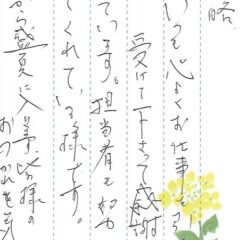 略
いつも心よくお仕事を
受けて下さって感謝
ています。担当者も
てくれている様です。
から盛夏に入り 皆様の
おつかれを